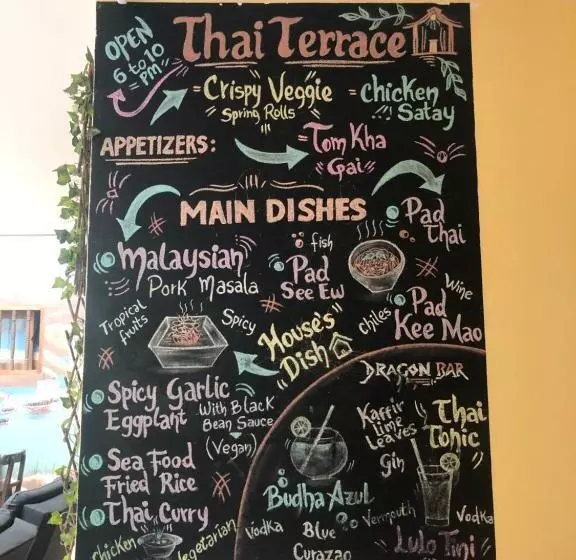 OPEN
6 to 10
PM
Thai Terrace
Crispy Veggie
Spring Rolls
chicken
Satay
APPETIZERS:
Tom Kha
Gai
MAIN DISHES
Pad
Thai
Malaysian
Pork Masala
fish
Pad
See Ew
Wine
Pad
Kee Mao
chiles
Tropical
fruits
Spicy
House's
Dish
Spicy Garlic
Eggplant
With Black
Bean Sauce
(Vegan)
Sea Food
Fried Rice
Thai Curry
Chicken
Vegetarian
DRAGON BAR
Kaffir
Lime
Leaves
Gin
Thai
Tonic
Budha Azul
Vodka
Blue
Curazao
Vermouth
Vodka
Lulo Tini